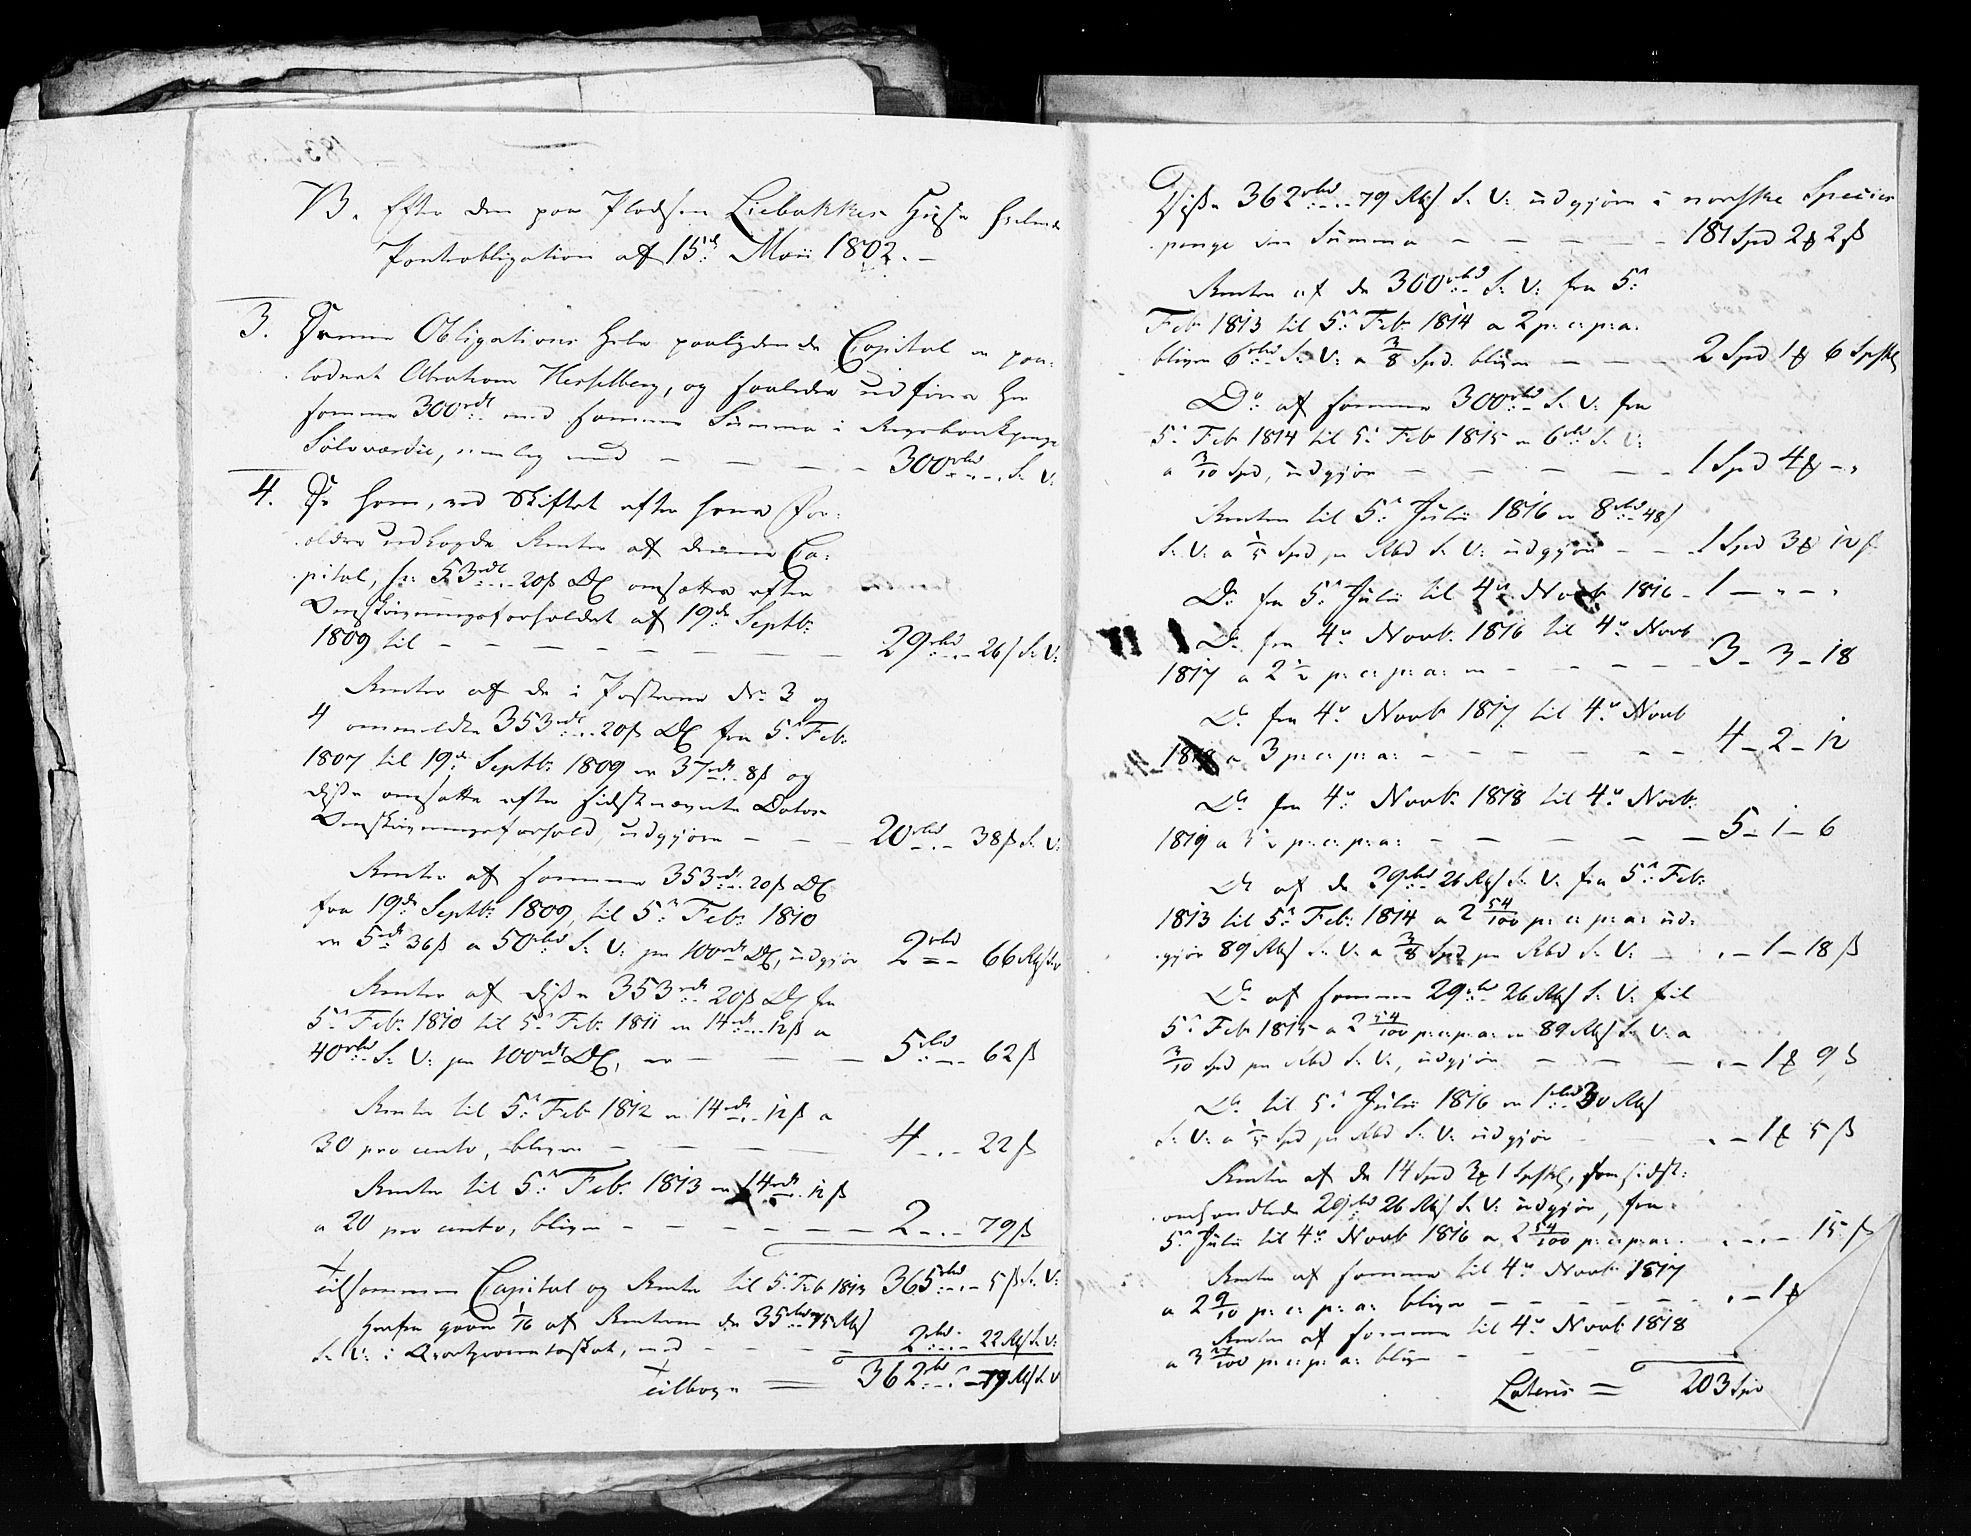 B. Efter den paa Pladsen Liebakken
Pantobligation af 15de Maii 1802. –
3. Denne Obligations hele paalydende Capital er paa-
lodnet Abraham Hesselberg, og saaledes udføres her
samme 300rdl med samme Summa i Rigsbankpenge
Sølvværdie, nemlig med – – – – 300rbd S. V.
4. De ham, ved Skiftet efter hans For-
ældre udlagde Renter af denne Ca-
pital, er: 53rdl 20ß DC omsættes efter
Omskrivningsforholdet af 19de Septbr
1809 til – – – – – – – 29rbd 26ß S. V.
Renter af de i Posterne No 3 og
4 anmeldte 353rdl 20ß DC fra 5te Feb.
1807 til 19de Septbr 1809 er 37rdl 8ß og
disse omsatte efter sidstnævnte Datos
Omskrivningsforhold, udgjøre – – – 20rbd 38ß S. V.
Renter af samme 353rdl 20ß DC
fra 19de Septbr 1809, til 5te Feb. 1810
er 5rdl 36ß a 50rbd S. V. pr 100rdl DC, udgjør 2rbd 66 Rbß S. V.
Renter af disse 353rdl 20ß DC fra
5te Feb. 1810 til 5te Feb. 1811 er 14rdl 12ß a
40rbd S. V. pr 100rdl DC, er – – – 5rbd 62ß
Renter til 5te Feb 1812 er 14rdl 12ß a
30 pro cento, bliver – – – – 4 – 22ß
Renter til 5te Feb. 1813 er 14rdl 12ß
a 20 pro cento, bliver – – – – – – 2 – 79ß
Tilsammen Capital og Renter til 5te Feb 1813 365rbd 5ß S. V.
Herfra gaaer 1/16 af Renterne de 35rbd
S. V. i med – – – 2rbd 22 Rbß S. V.
Tilbage = 362rbd 79 Rbß S. V.
Disse 362rbd 79 Rbß S. V. udgjøre i norske Specier
penge den Summa – – – – 181 Spd 2 ort 2ß
Renter af de 300rbd S. V. fra 5te
Feb. 1813 til 5te Feb. 1814 a 2 p: c: p: a:
bliver 6rbd S. V. a 3/8 Spd. bliver – – – 2 Spd 1 ort 6 Spßk
Do af samme 300rbd S. V. fra
5te Feb 1814 til 5te Feb 1815 er 6rbd S. V.
a 3/10 Spd, udgjør – – – – – 1 Spd 4 ort –
Renter til 5te Julii 1816 er 8rbd 48ß
S. V. a 1/5 Spd pr Rbd S. V. udgjør – – 1 Spd 3 ort 12ß
Do fra 5te Julii til 4de Novbr 1816 – 1 – – –
Do fra 4de Novbr. 1816 til 4de Novb
1817 a 2½ p: c: p: a: er – – – – – 3 – 3 – 18
Do fra 4de Novbr 1817 til 4de Novb
1818 a 3 p: c: p: a: – – – – – – 4 – 2 – 12
Do fra 4de Novb. 1818 til 4de Novb.
1819 a 3½ p: c: p: a: – – – – – – 5 – 1 – 6
Do af de 29rbd 26 Rbß S. V. fra 5te Feb.
1813 til 5te Feb. 1814 a 2 54/100 p: c: p: a: ud-
gjør 89 Rbß S. V. a 3/8 Spd pr Rbd S. V. – – 1 – 18ß
Do af samme 29rbd 26 Rbß S. V. til
5te Feb 1815 a 2 54/100 p: c: p: a: er 89 Rbß S. V. a
3/10 Spd pr Rbd S. V., udgjør – – – – 1 ort 9ß
Do til 5te Julii 1816 er 1rbd 30 Rbß
S. V. a 1/5 Spd pr Rbd S. V. udgjør – – 1 ort 5ß
Renter af de 14 Spd 3 ort 1 Spßk, som sidst-
omhandlede 29rbd 26 Rbß S. V. udgjør, fra
5te Julii til 4de Novbr 1816 a 2 54/100 p: c: p: a: – – 15ß
Renter af samme til 4de Novbr 1817
a 2 9/10 p: c: p: a: bliver – – – – – – 1 ort
Renter af samme til 4de Novbr 1818
a 3 p: c: p: a: bliver – – –
Lateris = 203 Spd